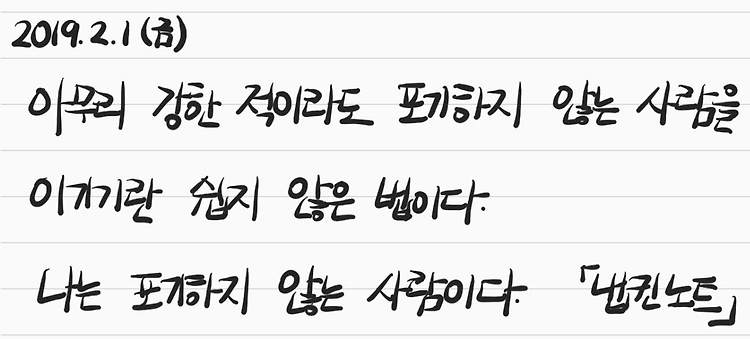 2019.2.1 (금)
아무리 강한 적이라도 포기하지 않는 사람을
이기기란 쉽지 않은 법이다.
나는 포기하지 않는 사람이다. 「냅킨노트」